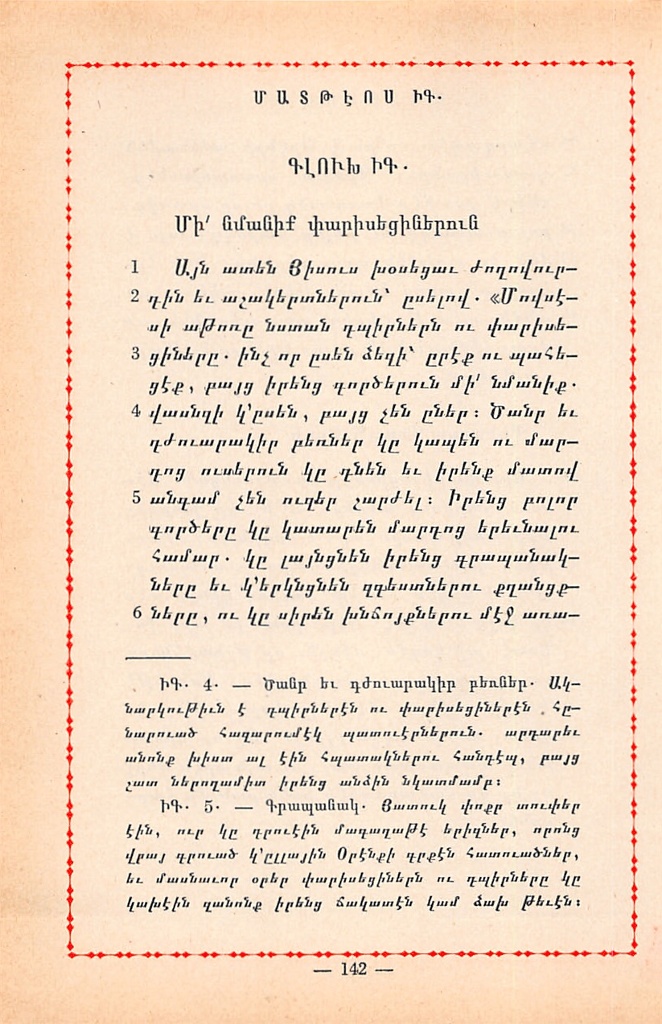 ՄԱՏԹԷՈՍ ԻԳ.
ԳԼՈՒԽ ԻԳ.
Մի՛ նմանիք փարիսեցիներուն
1 Այն ատեն Յիսուս խօսեցաւ ժողովուր–
2 դին եւ աշակերտներուն՝ ըսելով. «Մովսէ–
սի աթոռը նստան դպիրներն ու փարիսե–
3 ցիները. ինչ որ ըսեն ձեզի՝ ըրէք ու պահե–
ցէք, բայց իրենց գործերուն մի՛ նմանիք.
4 վասնզի կ՚ըսեն, բայց չեն ըներ։ Ծանր եւ
դժուարակիր բեռներ կը կապեն ու մար–
դոց ուսերուն կը դնեն եւ իրենք մատով
5 անգամ չեն ուզեր շարժել։ Իրենց բոլոր
գործերը կը կատարեն մարդոց երեւնալու
համար. կը լայնցնեն իրենց գրապանակ–
ները եւ կ՚երկնցնեն զգեստներու քղանցք–
6 ները, ու կը սիրեն խնճոյքներու մէջ առա–
ԻԳ. 4. — Ծանր եւ դժուարակիր բեռներ. Ակ–
նարկութիւն է դպիրներէն ու փարիսեցիներէն հը–
նարուած հազարումէկ պատուէրներուն. արդարեւ
անոնք խիստ ալ էին հպատակներու հանդէպ, բայց
շատ ներողամիտ իրենց անձին նկատմամբ։
ԻԳ. 5. — Գրապանակ. Յատուկ փոքր տուփեր
էին, ուր կը դրուէին մագաղաթէ երիզներ, որոնց
վրայ գրուած կ՚ըլլային Օրէնքի գրքէն հատուածներ,
եւ մասնաւոր օրեր փարիսեցիներն ու դպիրները կը
կախէին զանոնք իրենց ճակատէն կամ ձախ թեւէն։
— 142 —